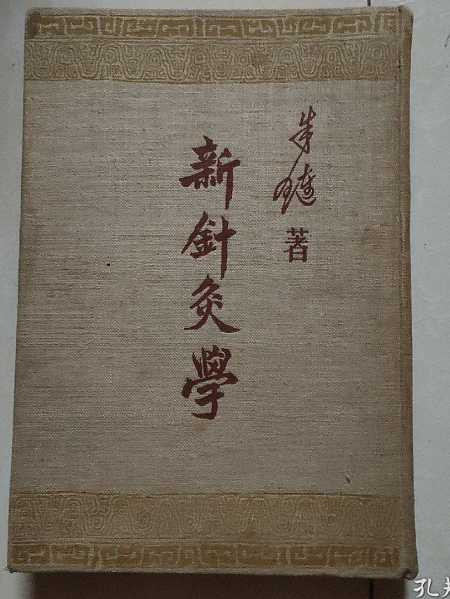 朱琏 著
新針灸學
孔